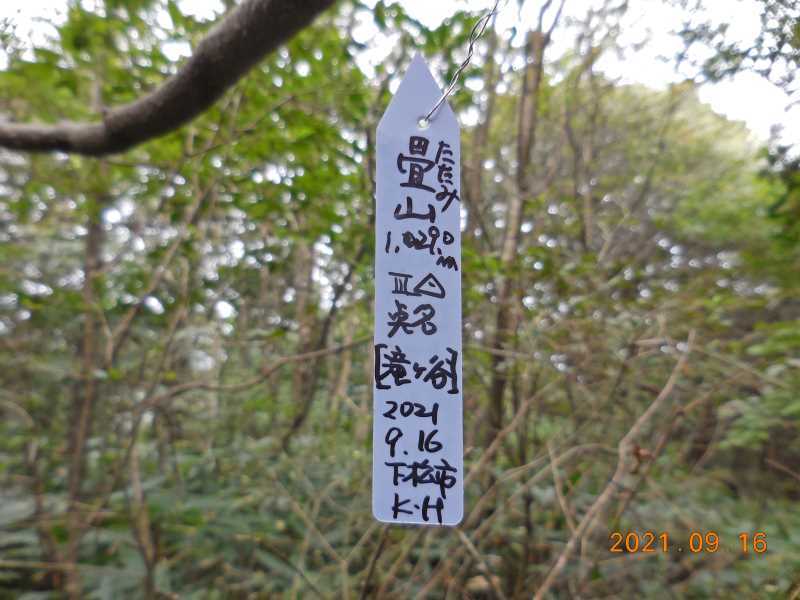 畳
たたみ
山
1,029.0m
Ⅲ△
点名
[滝ヶ谷]
2021
9.16
下松市
K.H
2021.09 16